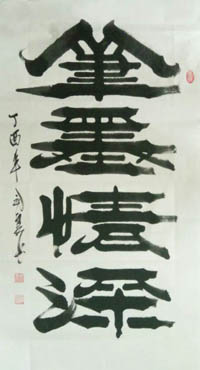 笔墨情深
丁酉年